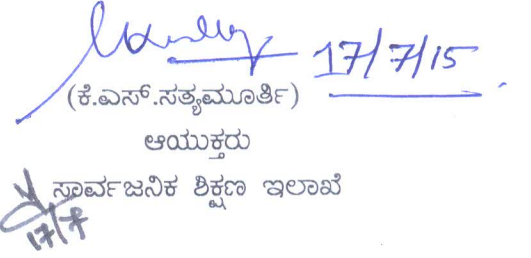 17/7/15
(ಕೆ.ಎಸ್.ಸತ್ಯಮೂರ್ತಿ)
ಆಯುಕ್ತರು
ಸಾರ್ವಜನಿಕ ಶಿಕ್ಷಣ ಇಲಾಖೆ
17/7